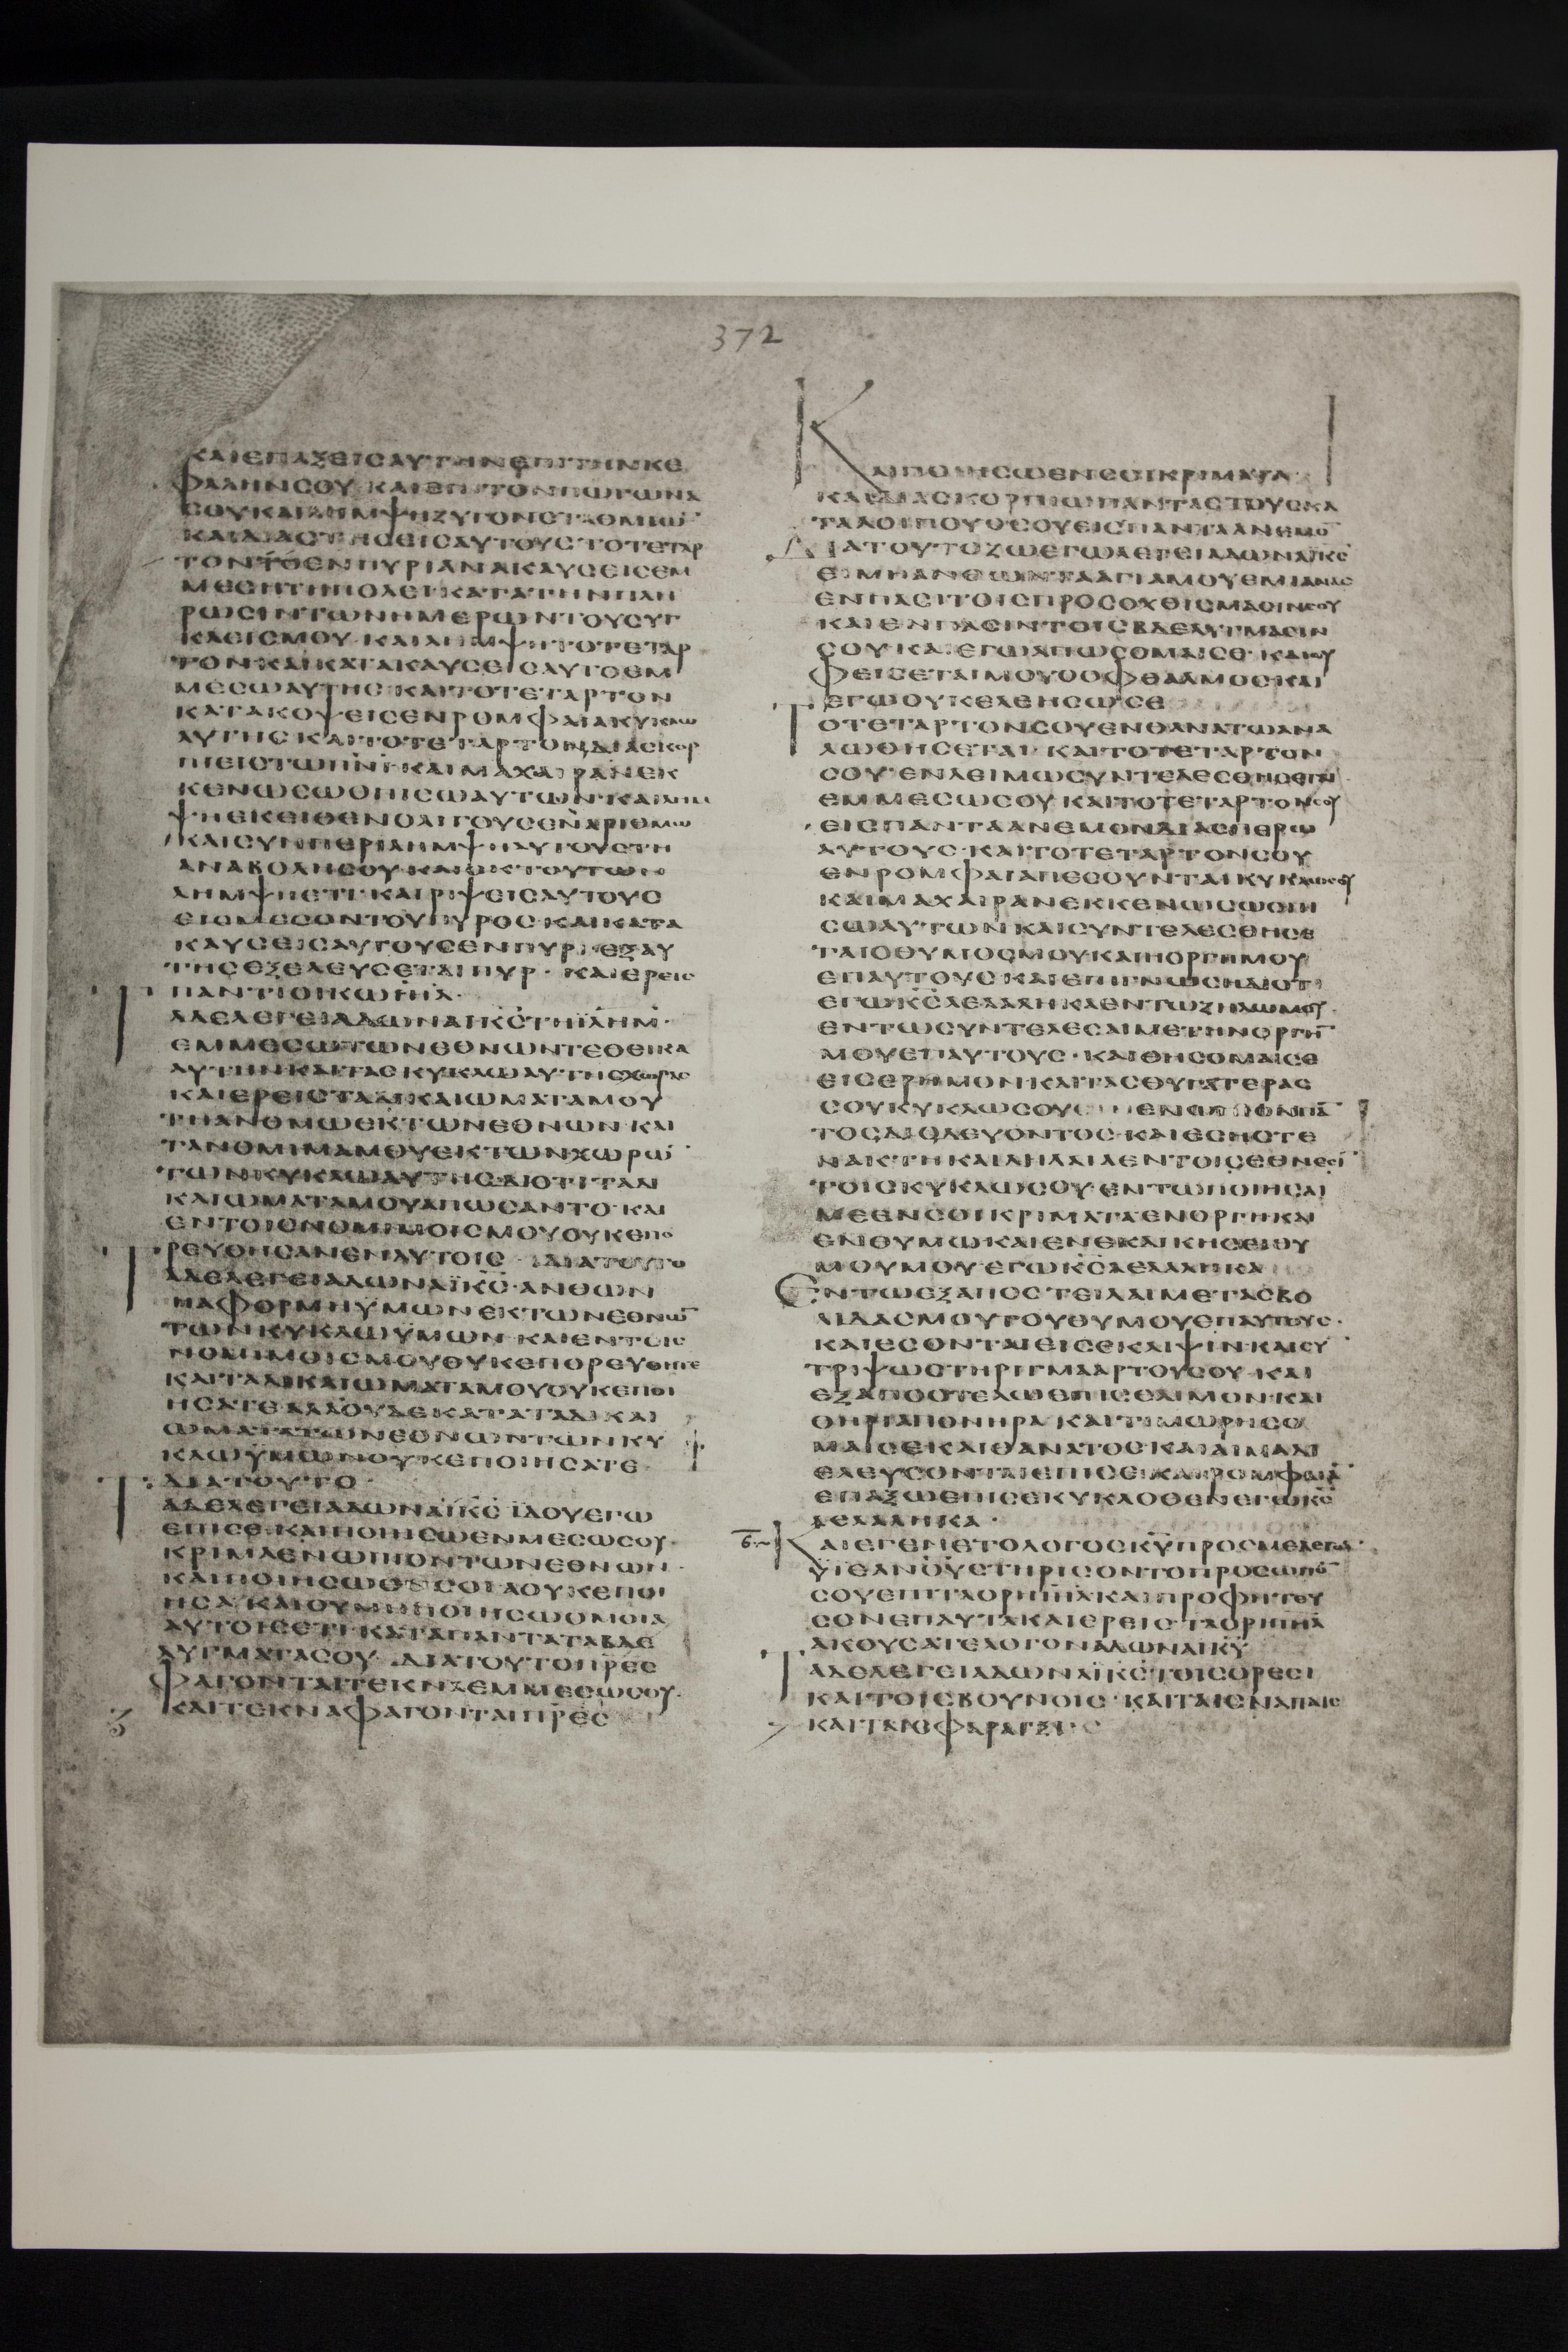 372
ΚΑΙΕΠΑΞΕΙΣΑΥΤΗΝΕΠΙΤΗΝΚΕ
ΦΑΛΗΝΣΟΥΚΑΙΕΠΙΤΟΝΠΩΓΩΝΑ
ΣΟΥΚΑΙΛΗΜΨΗΖΥΓΟΝΣΤΑΘΜΙΩ̅
ΚΑΙΔΙΑΣΤΗΣΕΙΣΑΥΤΟΥΣΤΟΤΕΤΑΡ
ΤΟΝΤΟΕΝΠΥΡΙΑΝΑΚΑΥΣΕΙΣΕΜ
ΜΕΣΗΤΗΠΟΛΕΙΚΑΤΑΤΗΝΠΛΗ
ΡΩΣΙΝΤΩΝΗΜΕΡΩΝΤΟΥΣΥΓ
ΚΛΕΙΣΜΟΥ·ΚΑΙΛΗΜΨΗΤΟΤΕΤΑΡ
ΤΟΝΚΑΙΚΑΤΑΚΑΥΣΕΙΣΑΥΤΟΕΜ
ΜΕΣΩΑΥΤΗΣ·ΚΑΙΤΟΤΕΤΑΡΤΟΝ
ΚΑΤΑΚΟΨΕΙΣΕΝΡΟΜΦΑΙΑΚΥΚΛΩ
ΑΥΤΗΣΚΑΙΤΟΤΕΤΑΡΤΟΝΔΙΑΣΚΟΡ
ΠΙΕΙΣΤΩΠΝΙ·ΚΑΙΜΑΧΑΙΡΑΝΕΚ
ΚΕΝΩΣΩΟΠΙΣΩΑΥΤΩΝ·ΚΑΙΛΗΜ
ΨΗΕΚΕΙΘΕΝΟΛΙΓΟΥΣΕΝΑΡΙΘΜΩ
ΚΑΙΣΥΝΠΕΡΙΛΗΜΨΗΑΥΤΟΥΣΤΗ
ΑΝΑΒΟΛΗΣΟΥ·ΚΑΙΕΚΤΟΥΤΩΝ
ΛΗΜΨΗΕΤΙ·ΚΑΙΡΙΨΕΙΣΑΥΤΟΥΣ
ΕΙΣΜΕΣΟΝΤΟΥΠΥΡΟΣ·ΚΑΙΚΑΤΑ
ΚΑΥΣΕΙΣΑΥΤΟΥΣΕΝΠΥΡΙ·ΕΞΑΥ
ΤΗΣΕΞΕΛΕΥΣΕΤΑΙΠΥΡ·ΚΑΙΕΡΕΙΣ
ΠΑΝΤΙΟΙΚΩΙΗΛ·
ΤΑΔΕΛΕΓΕΙΑΔΩΝΑΙΚΣΤΗΙΛΗΜ·
ΕΜΜΕΣΩΤΩΝΕΘΝΩΝΤΕΘΕΙΚΑ
ΑΥΤΗΝΚΑΙΤΑΣΚΥΚΛΩΑΥΤΗΣΧΩΡΑΣ
ΚΑΙΕΡΕΙΣΤΑΔΙΚΑΙΩΜΑΤΑΜΟΥ
ΤΗΑΝΟΜΩΕΚΤΩΝΕΘΝΩΝΚΑΙ
ΤΑΝΟΜΙΜΑΜΟΥΕΚΤΩΝΧΩΡΩ̅
ΤΩΝΚΥΚΛΩΑΥΤΗΣΔΙΟΤΙΤΑΔΙ
ΚΑΙΩΜΑΤΑΜΟΥΑΠΩΣΑΝΤΟ·ΚΑΙ
ΕΝΤΟΙΣΝΟΜΙΜΟΙΣΜΟΥΟΥΚΕΠΟ
ΡΕΥΘΗΣΑΝΕΝΑΥΤΟΙΣ ΔΙΑΤΟΥΤΟ
ΤΑΔΕΛΕΓΕΙΑΔΩΝΑΪΚΣ·ΑΝΘΩΝ
ΗΑΦΟΡΜΗΫΜΩΝΕΚΤΩΝΕΘΝΩ̅
ΤΩΝΚΥΚΛΩΫΜΩΝ·ΚΑΙΕΝΤΟΙΣ
ΝΟΜΙΜΟΙΣΜΟΥΟΥΚΕΠΟΡΕΥΘΗΤΕ
ΚΑΙΤΑΔΙΚΑΙΩΜΑΤΑΜΟΥΟΥΚΕΠΟΙ
ΗΣΑΤΕΑΛΛΟΥΔΕΚΑΤΑΤΑΔΙΚΑΙ
ΩΜΑΤΑΤΩΝΕΘΝΩΝΤΩΝΚΥ
ΚΛΩΫΜΩΝΟΥΚΕΠΟΙΗΣΑΤΕ·
ΔΙΑΤΟΥΤΟ·
ΤΑΔΕΛΕΓΕΙΑΔΩΝΑΪΚΣΪΔΟΥΕΓΩ
ΕΠΙΣΕ·ΚΑΙΠΟΙΗΣΩΕΝΜΕΣΩΣΟΥ·
ΚΡΙΜΑΕΝΩΠΙΟΝΤΩΝΕΘΝΩΝ·
ΚΑΙΠΟΙΗΣΩΕΝΣΟΙΑΟΥΚΕΠΟΙ
ΗΣΑ·ΚΑΙΟΥΜΗΠΟΙΗΣΩΟΜΟΙΑ
ΑΥΤΟΙΣΕΤΙ·ΚΑΤΑΠΑΝΤΑΤΑΒΔΕ
ΛΥΓΜΑΤΑΣΟΥ·ΔΙΑΤΟΥΤΟΠΡΕΣ
ΦΑΓΟΝΤΑΙΤΕΚΝΑΕΜΜΕΣΩΣΟΥ·
ΚΑΙΤΕΚΝΑΦΑΓΟΝΤΑΙΠΡΕΣ
ΚΑΙΠΟΙΗΣΩΕΝΣΟΙΚΡΙΜΑΤΑ·
ΚΑΙΔΙΑΣΚΟΡΠΙΩΠΑΝΤΑΣΤΟΥΣΚΑ
ΤΑΛΟΙΠΟΥΣΣΟΥΕΙΣΠΑΝΤΑΑΝΕΜΟ̅
ΔΙΑΤΟΥΤΟΖΩΕΓΩΛΕΓΕΙΑΔΩΝΑΪΚΣ
ΕΙΜΗΑΝΘΩΝΤΑΑΓΙΑΜΟΥΕΜΙΑΝΑΣ
ΕΝΠΑΣΙΤΟΙΣΠΡΟΣΟΧΘΙΣΜΑΣΙΝΣΟΥ
ΚΑΙΕΝΠΑΣΙΝΤΟΙΣΒΔΕΛΥΓΜΑΣΙΝ
ΣΟΥΚΑΙΕΓΩΑΠΩΣΟΜΑΙΣΕ·ΚΑΙΟΥ
ΦΕΙΣΕΤΑΙΜΟΥΟΟΦΘΑΛΜΟΣΚΑΙ
ΕΓΩΟΥΚΕΛΕΗΣΩΣΕ
ΤΟΤΕΤΑΡΤΟΝΣΟΥΕΝΘΑΝΑΤΩΑΝΑ
ΛΩΘΗΣΕΤΑΙ·ΚΑΙΤΟΤΕΤΑΡΤΟΝ
ΣΟΥ·ΕΝΛΕΙΜΩΣΥΝΤΕΛΕΣΘΗΣΕΤΑΙ
ΕΜΜΕΣΩΣΟΥΚΑΙΤΟΤΕΤΑΡΤΟΝΣΟΥ
ΕΙΣΠΑΝΤΑΑΝΕΜΟΝΔΙΑΣΠΕΡΩ
ΑΥΤΟΥΣ·ΚΑΙΤΟΤΕΤΑΡΤΟΝΣΟΥ
ΕΝΡΟΜΦΑΙΑΠΕΣΟΥΝΤΑΙΚΥΚΛΩΣΟΥ
ΚΑΙΜΑΧΑΙΡΑΝΕΚΚΕΝΩΣΩΟΠΙ
ΣΩΑΥΤΩΝΚΑΙΣΥΝΤΕΛΕΣΘΗΣΕ
ΤΑΙΟΘΥΜΟΣΜΟΥΚΑΙΗΟΡΓΗΜΟΥ
ΕΠΑΥΤΟΥΣΚΑΙΕΠΙΓΝΩΣΗΔΙΟΤΙ
ΕΓΩΚΣΛΕΛΑΛΗΚΑΕΝΤΩΖΗΛΩΜΟΥ
ΕΝΤΩΣΥΝΤΕΛΕΣΑΙΜΕΤΗΝΟΡΓΗ̅
ΜΟΥΕΠΑΥΤΟΥΣ·ΚΑΙΘΗΣΟΜΑΙΣΕ
ΕΙΣΕΡΗΜΟΝΚΑΙΤΑΣΘΥΓΑΤΕΡΑΣ
ΣΟΥΚΥΚΛΩΣΟΥ ΕΝΩΠΙΟΝΠΑ̅
ΤΟΣΔΙΟΔΕΥΟΝΤΟΣ·ΚΑΙΕΣΗΣΤΕ
ΝΑΚΤΗΚΑΙΔΗΛΑΙΑΕΝΤΟΙΣΕΘΝΕΣΙ
ΤΟΙΣΚΥΚΛΩΣΟΥ·ΕΝΤΩΠΟΙΗΣΑΙ
ΜΕΕΝΣΟΙΚΡΙΜΑΤΑΕΝΟΡΓΗΚΑΙ
ΕΝΘΥΜΩΚΑΙΕΝΕΚΔΙΚΗΣΕΙΘΥ
ΜΟΥΜΟΥ·ΕΓΩΚΣΛΕΛΑΛΗΚΑ
ΕΝΤΩΕΞΑΠΟΣΤΕΙΛΑΙΜΕΤΑΣΒΟ
ΛΙΔΑΣΜΟΥΤΟΥΘΥΜΟΥΕΠΑΥΤΟΥΣ·
ΚΑΙΕΣΟΝΤΑΙΕΙΣΕΚΛΙΨΙΝ·ΚΑΙΣΥ
ΤΡΙΨΩΣΤΗΡΙΓΜΑΑΡΤΟΥΣΟΥ·ΚΑΙ
ΕΞΑΠΟΣΤΕΛΩΕΠΙΣΕΛΙΜΟΝ·ΚΑΙ
ΘΗΡΙΑΠΟΝΗΡΑ·ΚΑΙΤΙΜΩΡΗΣΟ
ΜΑΙΣΕΚΑΙΘΑΝΑΤΟΣΚΑΙΑΙΜΑΔΙ
ΕΛΕΥΣΟΝΤΑΙΕΠΙΣΕ·ΚΑΙΡΟΜΦΑΙΑ̅
ΕΠΑΞΩΕΠΙΣΕΚΥΚΛΟΘΕΝΕΓΩΚΣ
ΛΕΛΑΛΗΚΑ·
Ϛ ΚΑΙΕΓΕΝΕΤΟΛΟΓΟΣΚΥΠΡΟΣΜΕΛΕΓΩ̅·
ΫΙΕΑΝΟΥΣΤΗΡΙΣΟΝΤΟΠΡΟΣΩΠΟ̅
ΣΟΥΕΠΙΤΑΟΡΗΙΗΛΚΑΙΠΡΟΦΗΤΕΥ
ΣΟΝΕΠΑΥΤΑΚΑΙΕΡΕΙΣ·ΤΑΟΡΗΙΗΛ
ΑΚΟΥΣΑΤΕΛΟΓΟΝΑΔΩΝΑΙΚΥ
ΤΑΔΕΛΕΓΕΙΑΔΩΝΑΪΚΣΤΟΙΣΟΡΕΣΙ
ΚΑΙΤΟΙΣΒΟΥΝΟΙΣ·ΚΑΙΤΑΙΣΝΑΠΑΙΣ
ΚΑΙΤΑΙΣΦΑΡΑΓΞΙ